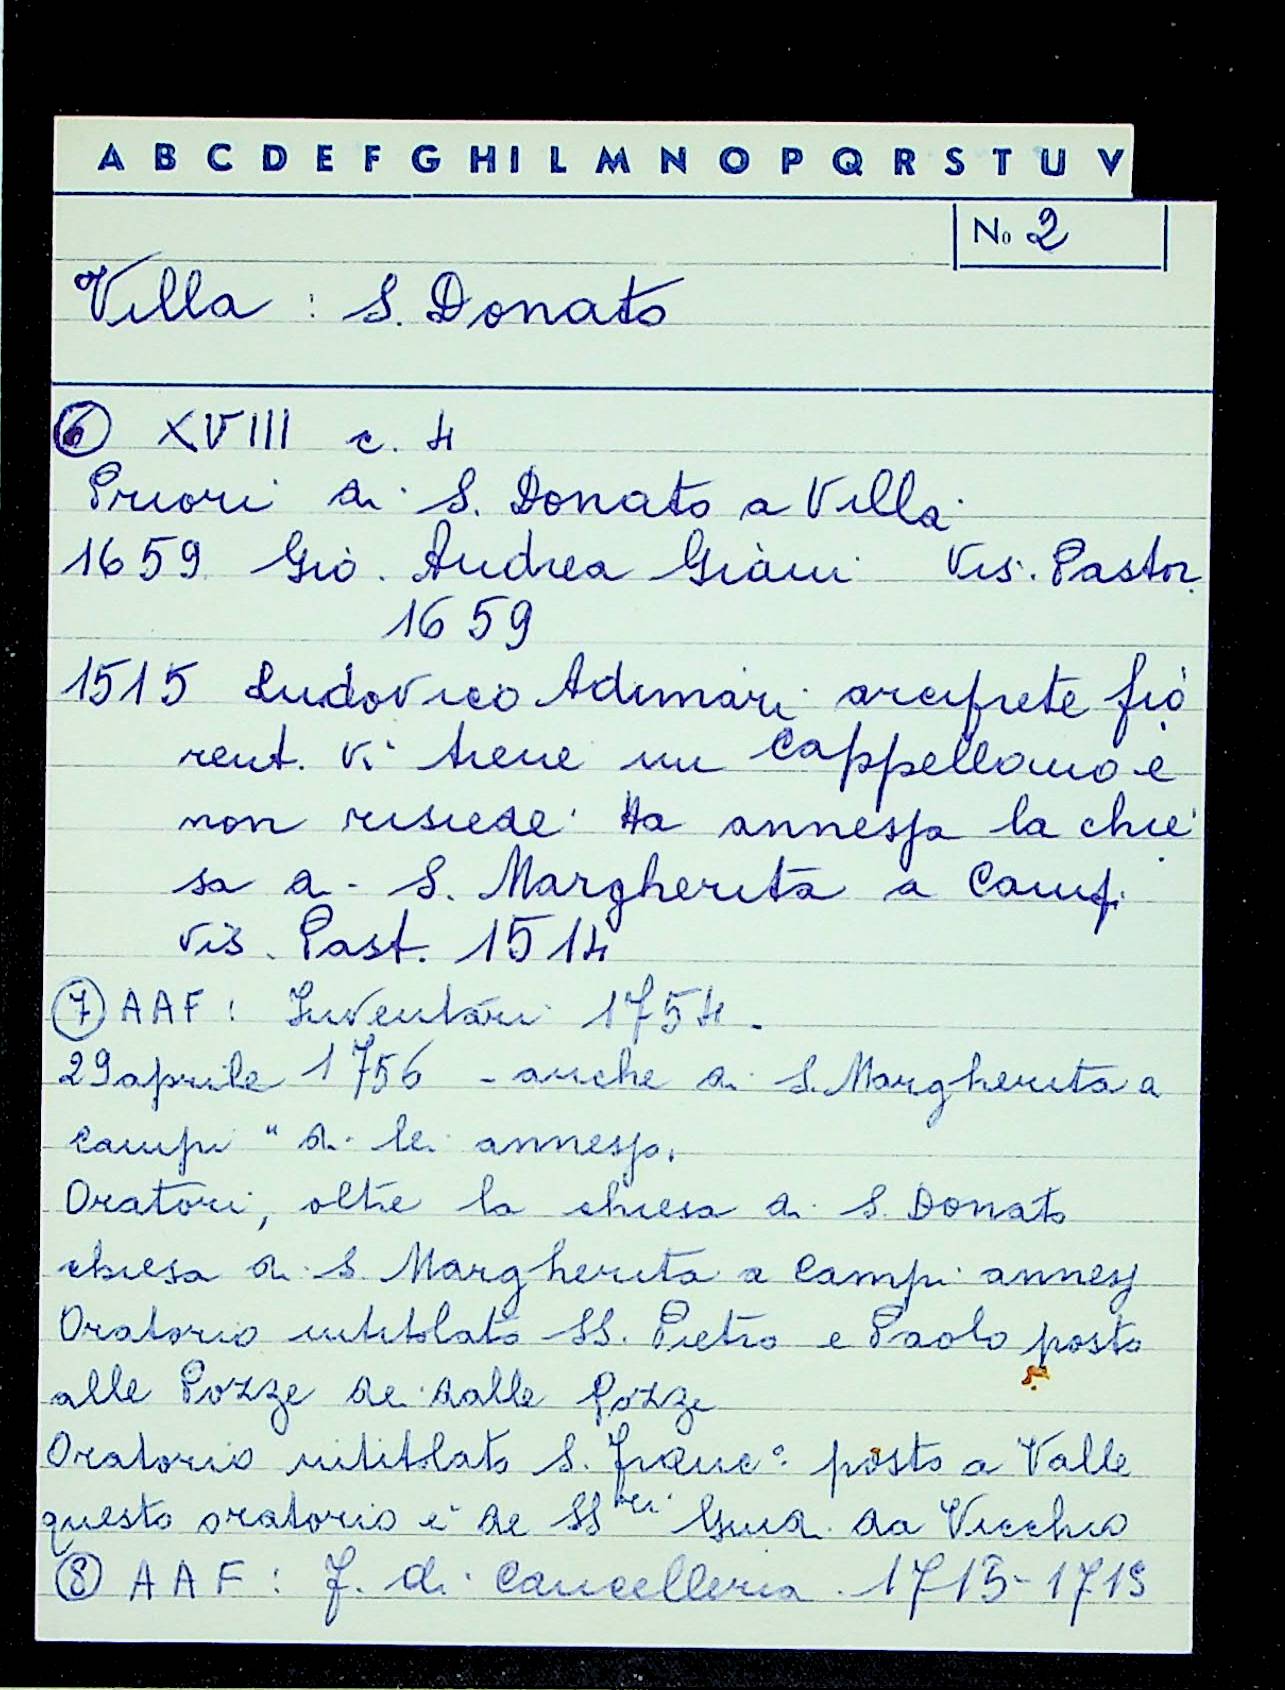 A B C D E F G H I L M N O P Q R S T U V
No 2
Villa : S. Donato
6 XVIII c. 4
Priori di S. Donato a Villa
1659 Giò. Andrea Giàni Vis. Pastor.
1659
1515 Ludovico Adimari arciprete fio
rent. vi tiene un Cappellano e
non risiede. Ha annessa la chie
sa di S. Margherita a Campi
vis. Past. 1514
7 AAF: Inventari 1754.
29 aprile 1756 - anche di S. Margherita a
Campi " di lei annessa.
Oratori, oltre la chiesa di S. Donato
chiesa di S. Margherita a Campi annessa
Oratorio intitolato SS. Pietro e Paolo posto
alle Pozze dei dalle Pozze
Oratorio intitolato S. Francº posto a Valle
questo oratorio è de SSri da Vicchio
8 AAF: f. di Cancelleria 1713-1719